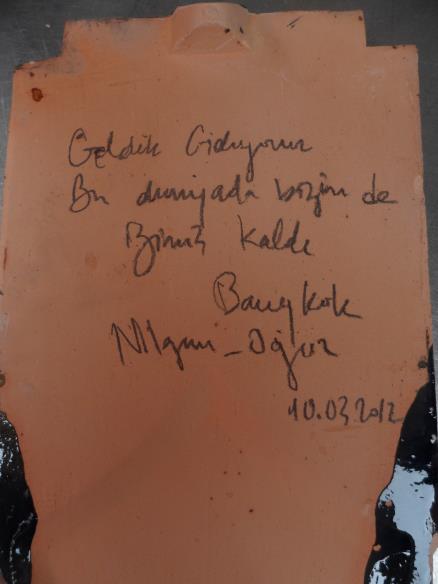 Geldik Gidiyoruz
Bu dünyada bizim de
İzimiz Kaldı
Bangkok
Nilgün - Oğuz
10.03.2012